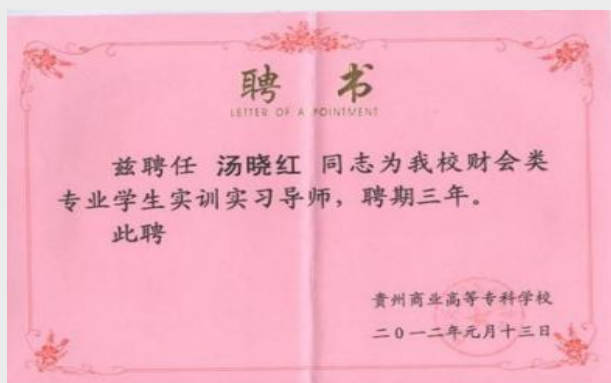 聘 书
LETTER OF A POINTMENT
兹聘任 汤晓红 同志为我校财会类
专业学生实训实习导师，聘期三年。
此聘
贵州商业高等专科学校
二0一二年元月十三日